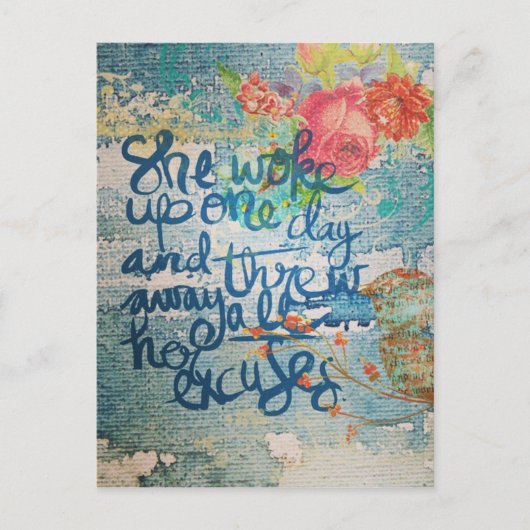 She woke
up one day
and threw
away all
her excuses.